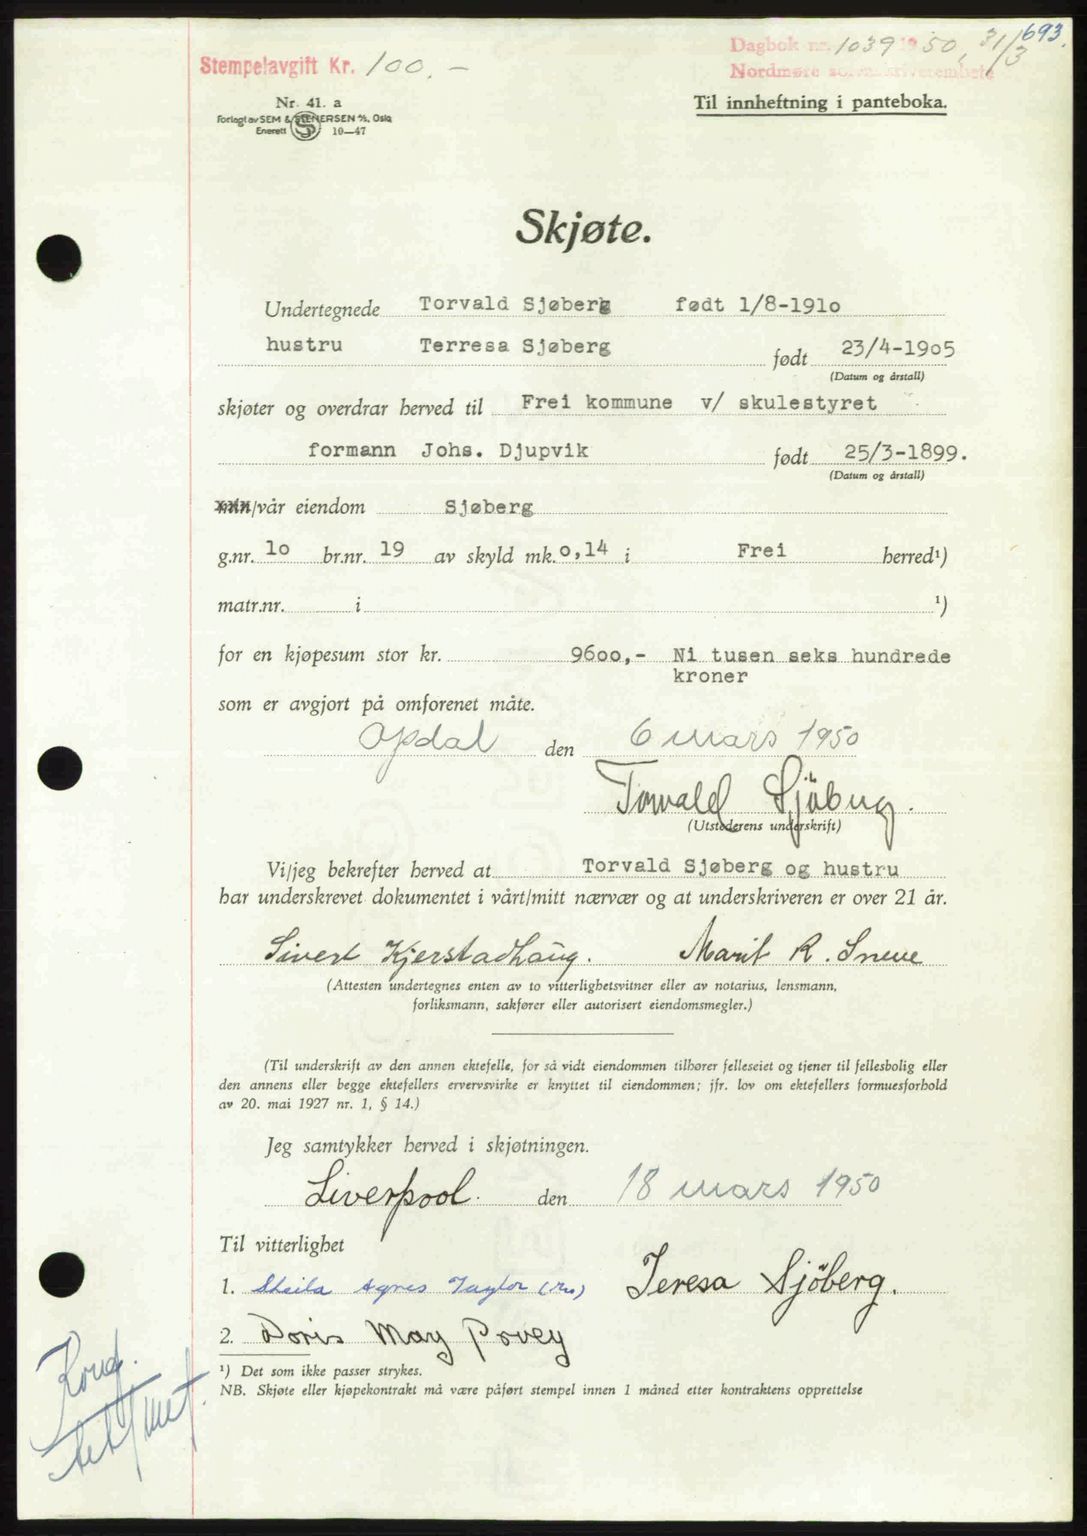 693.
Dagbok nr. 1039 1950, 31/3
Stempelavgift Kr. 100.-
Nordmøre sorenskriverembete
Nr. 41. a
Til innheftning i panteboka.
Forlagt av SEM & STENERSEN A/S, Oslo
Enerett SS 10—47
Skjøte.
Undertegnede Torvald Sjøberg født 1/8-1910
hustru Terresa Sjøberg født 23/4-1905
(Datum og årstall)
skjøter og overdrar herved til Frei kommune v/ skulestyret
formann Johs. Djupvik født 25/3-1899.
(Datum og årstall)
min/vår eiendom Sjøberg
g.nr. 10 br.nr. 19 av skyld mk. 0,14 i Frei herred¹)
matr.nr. i ¹)
for en kjøpesum stor kr. 9600,- Ni tusen seks hundrede
kroner
som er avgjort på omforenet måte.
Opdal den 6 mars 1950
Torvald Sjöberg.
(Utstederens underskrift)
Vi/jeg bekrefter herved at Torvald Sjøberg og hustru
har underskrevet dokumentet i vårt/mitt nærvær og at underskriveren er over 21 år.
Sivert Kjerstadhaug. Marit R. Sneve
(Attesten undertegnes enten av to vitterlighetsvitner eller av notarius, lensmann,
forliksmann, sakfører eller autorisert eiendomsmegler.)
(Til underskrift av den annen ektefelle, for så vidt eiendommen tilhører felleseiet og tjener til fellesbolig eller
den annens eller begge ektefellers ervervsvirke er knyttet til eiendommen; jfr. lov om ektefellers formuesforhold
av 20. mai 1927 nr. 1, § 14.)
Jeg samtykker herved i skjøtningen.
Liverpool. den 18 mars 1950
Til vitterlighet
1. Sheila Agnes Taylor (Mrs) Teresa Sjöberg.
2. Doris May Povey
¹) Det som ikke passer strykes.
NB. Skjøte eller kjøpekontrakt må være påført stempel innen 1 måned etter kontraktens opprettelse